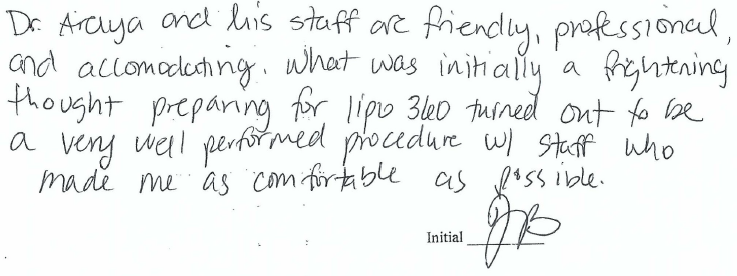 Dr. Araya and his staff are friendly, professional,
and accomodating. What was initially a frightening
thought preparing for lipo 360 turned out to be
a very well performed procedure w/ staff who
made me as comfortable as possible.
Initial JB